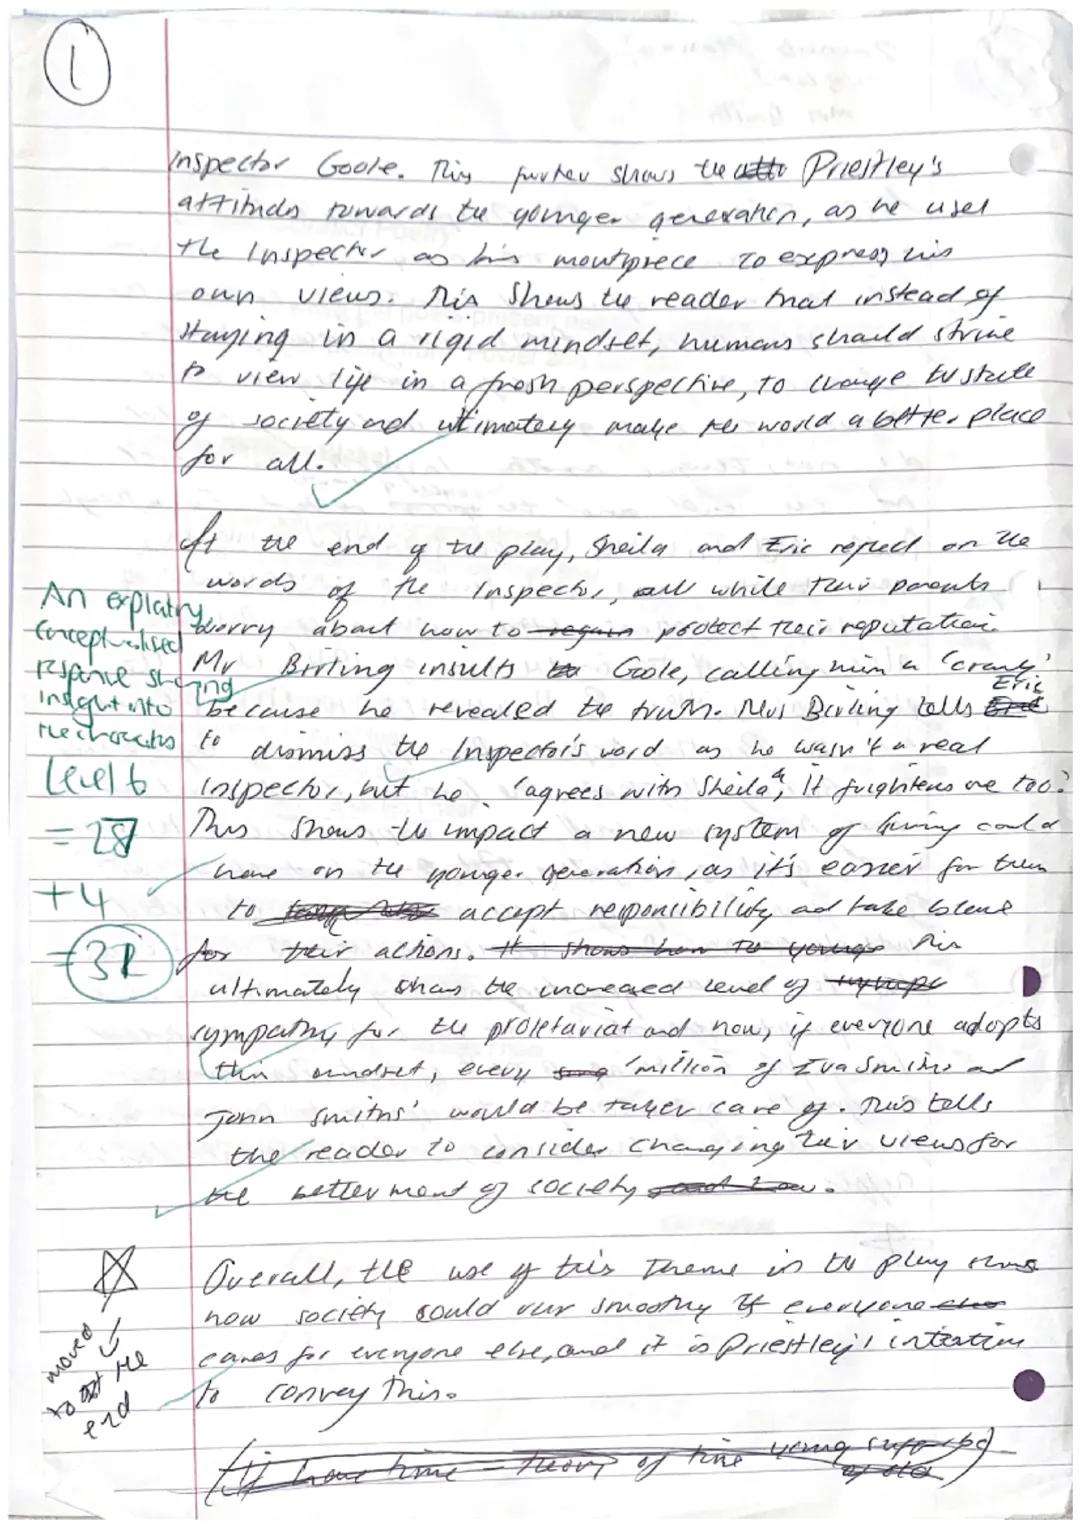 1
Inspector Goole. This further shows the Priestley's
attitudes towards the younger generation, as he uses
the Inspector as his mouthpiece to express his
own views. This shows the reader that instead of
staying in a rigid mindset, humans should strive
to view life in a fresh perspective, to change the state
of society and ultimately make the world a better place
for all.
At the end of the play, Sheila and Eric reflect on the
words of the Inspector, all while their parents
worry about how to regain protect their reputation.
Mr Birling insults Goole, calling him a 'crank'
because he revealed the truth. Mrs Birling tells Eric
to dismiss the Inspector's word as he wasn't a real
inspector, but he 'agrees with Sheila', It frightens me too.'
This shows the impact a new system of living could
have on the younger generation, as it's easier for them
to accept responsibility and take blame
for their actions. It shows how the younge This
ultimately shows the increased level of
sympathy for the proletariat and how, if everyone adopts
this mindset, every 'million of Eva Smiths and
John Smiths' would be taken care of. This tells
the reader to consider changing their views for
the betterment of society
An explatry
conceptualised
response showing
insight into
the characters
Level 6
= 28
+4
=32
Overall, the use of this theme in the play shows
how society could run smoothly if everyone
cares for everyone else, and it is Priestley's intention
to convey this.
moved
to the
end
(if have time - theory of time young supposed
of old)